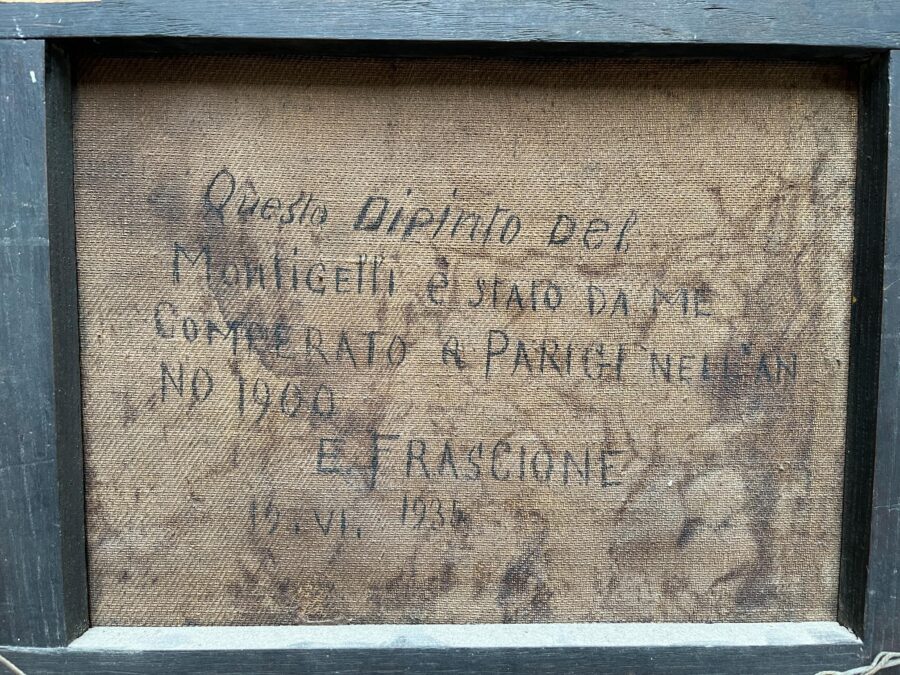 Questo Dipinto Del
Monticelli è stato DA ME
COMPERATO A PARIGI NELL'AN
NO 1900
E. FRASCIONE
VI.